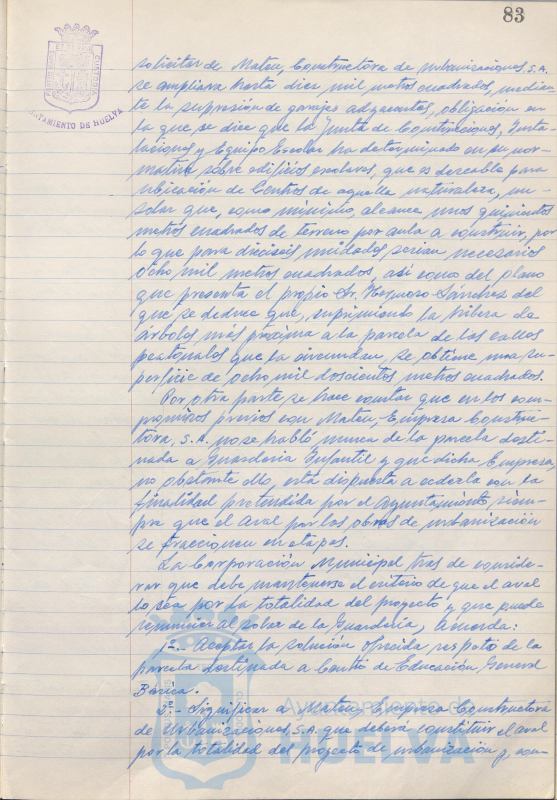 83
AYUNTAMIENTO DE HUELVA
solicitar de Mateu, Constructora de Urbanizaciones, S.A.
se ampliara hasta diez mil metros cuadrados, median
te la supresión de garajes adyacentes, obligación en
la que se dice que la Junta de Construcciones, Insta
laciones y Equipo Escolar ha determinado en su nor-
mativa sobre edificios escolares, que es deseable para
ubicación de Centros de aquella naturaleza, un
solar que, como mínimo, alcance unos quinientos
metros cuadrados de terreno por aula a construir, por
lo que para dieciseis unidades serian necesarios
ocho mil metros cuadrados, así como del plano
que presenta el propio Sr. Sánchez del
que se deduce que, suprimiendo la hilera de
árboles más próxima a la parcela de las calles
peatonales que la circundan, se obtiene una su-
perficie de ocho mil doscientos metros cuadrados.
Por otra parte se hace constar que en los com-
promisos previos con Mateu, Empresa Construc
tora, S.A. no se habló nunca de la parcela desti-
nada a Guardería Infantil y que dicha Empresa,
no obstante ello, está dispuesta a cederla con la
finalidad pretendida por el Ayuntamiento, siem-
pre que el aval por las obras de urbanización
se fraccione en etapas.
La Corporación Municipal tras de conside-
rar que debe mantenerse el criterio de que el aval
lo sea por la totalidad del proyecto y que puede
renunciar al solar de la Guardería, Acuerda:
1º.- Aceptar la solución ofrecida respecto de la
parcela destinada a Centro de Educación General
Básica.
2º.- Significar a Mateu, Empresa Constructora
de Urbanizaciones, S.A. que deberá constituir el aval
por la totalidad del proyecto de urbanización y con-
Ayuntamiento de
HUELVA